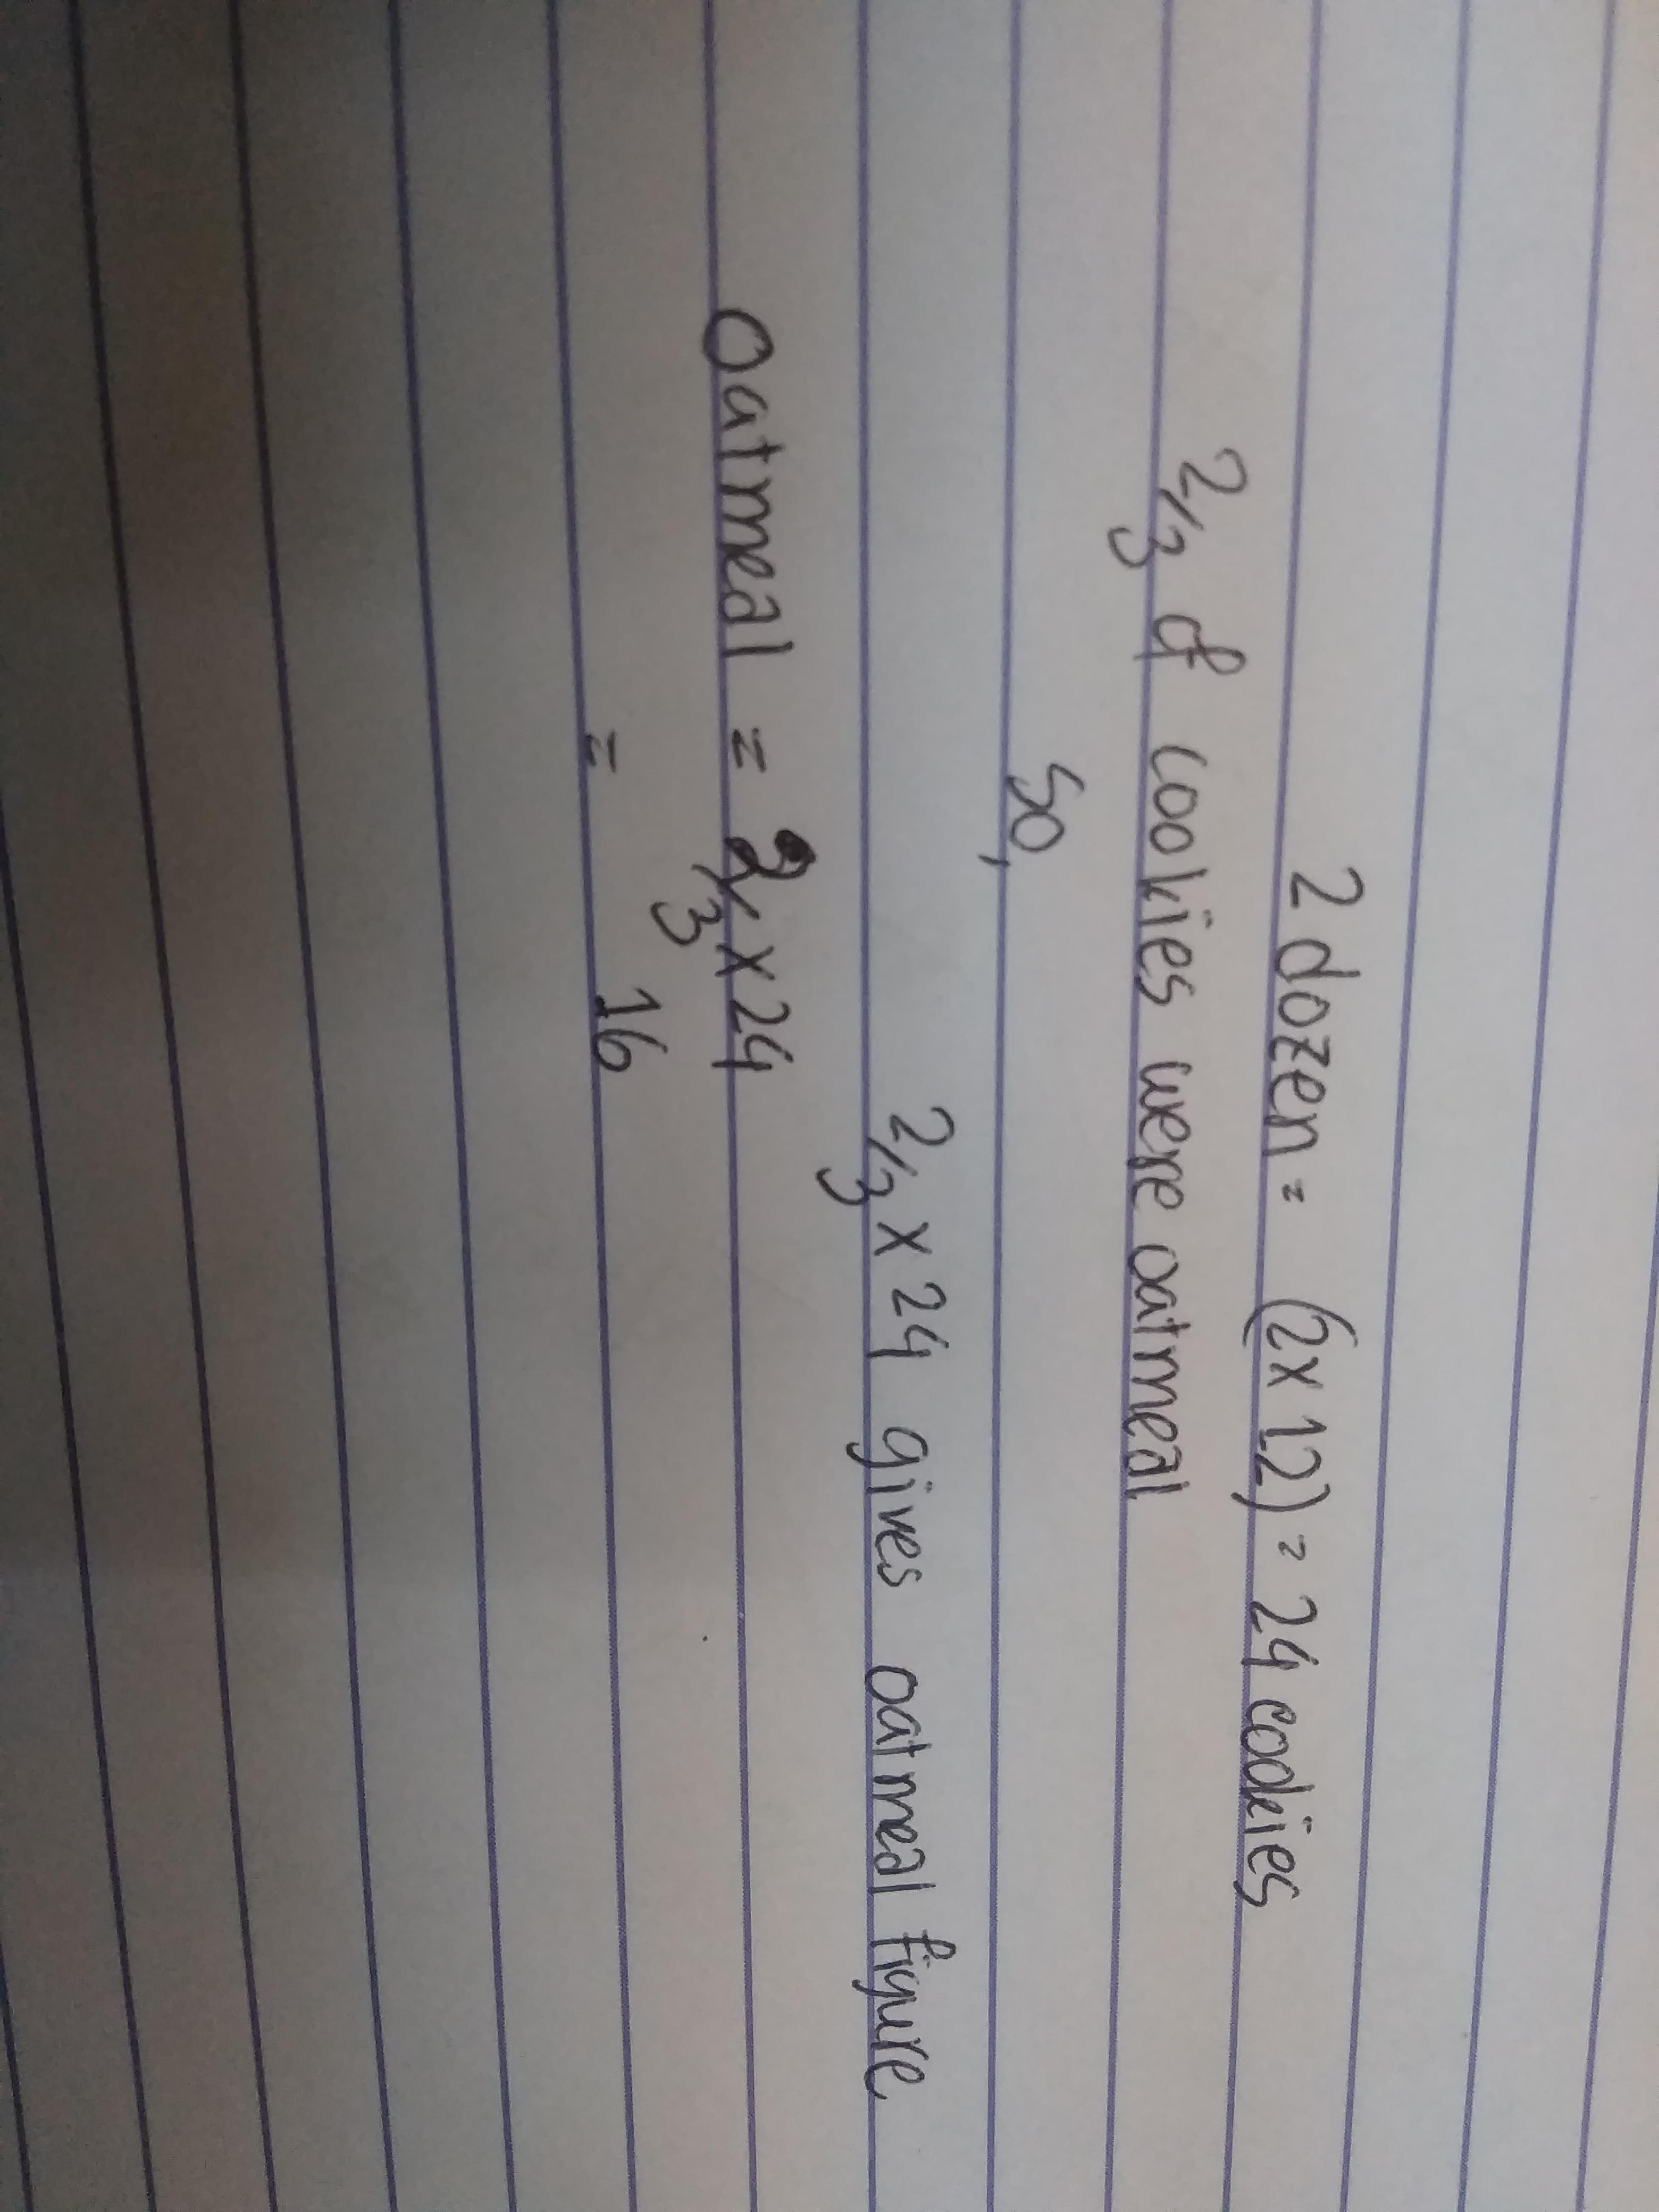 2 dozen = (2 x 12) = 24 cookies
2/3 of cookies were oatmeal
So,
2/3 x 24 gives oatmeal figure
Oatmeal = 2/3 x 24
= 16